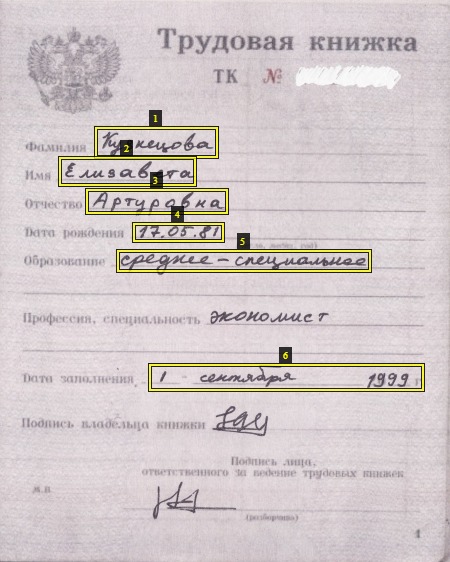 Трудовая книжка
ТК №
1
Фамилия Кузнецова
2
Имя Елизавета
3
Отчество Артуровна
4
Дата рождения 17.05.81
5
Образование среднее-специальное
Профессия, специальность экономист
6
Дата заполнения 1 сентября 1999 г.
Подпись владельца книжки
Подпись лица,
ответственного за ведение трудовых книжек
м.п.
(разборчиво)
1